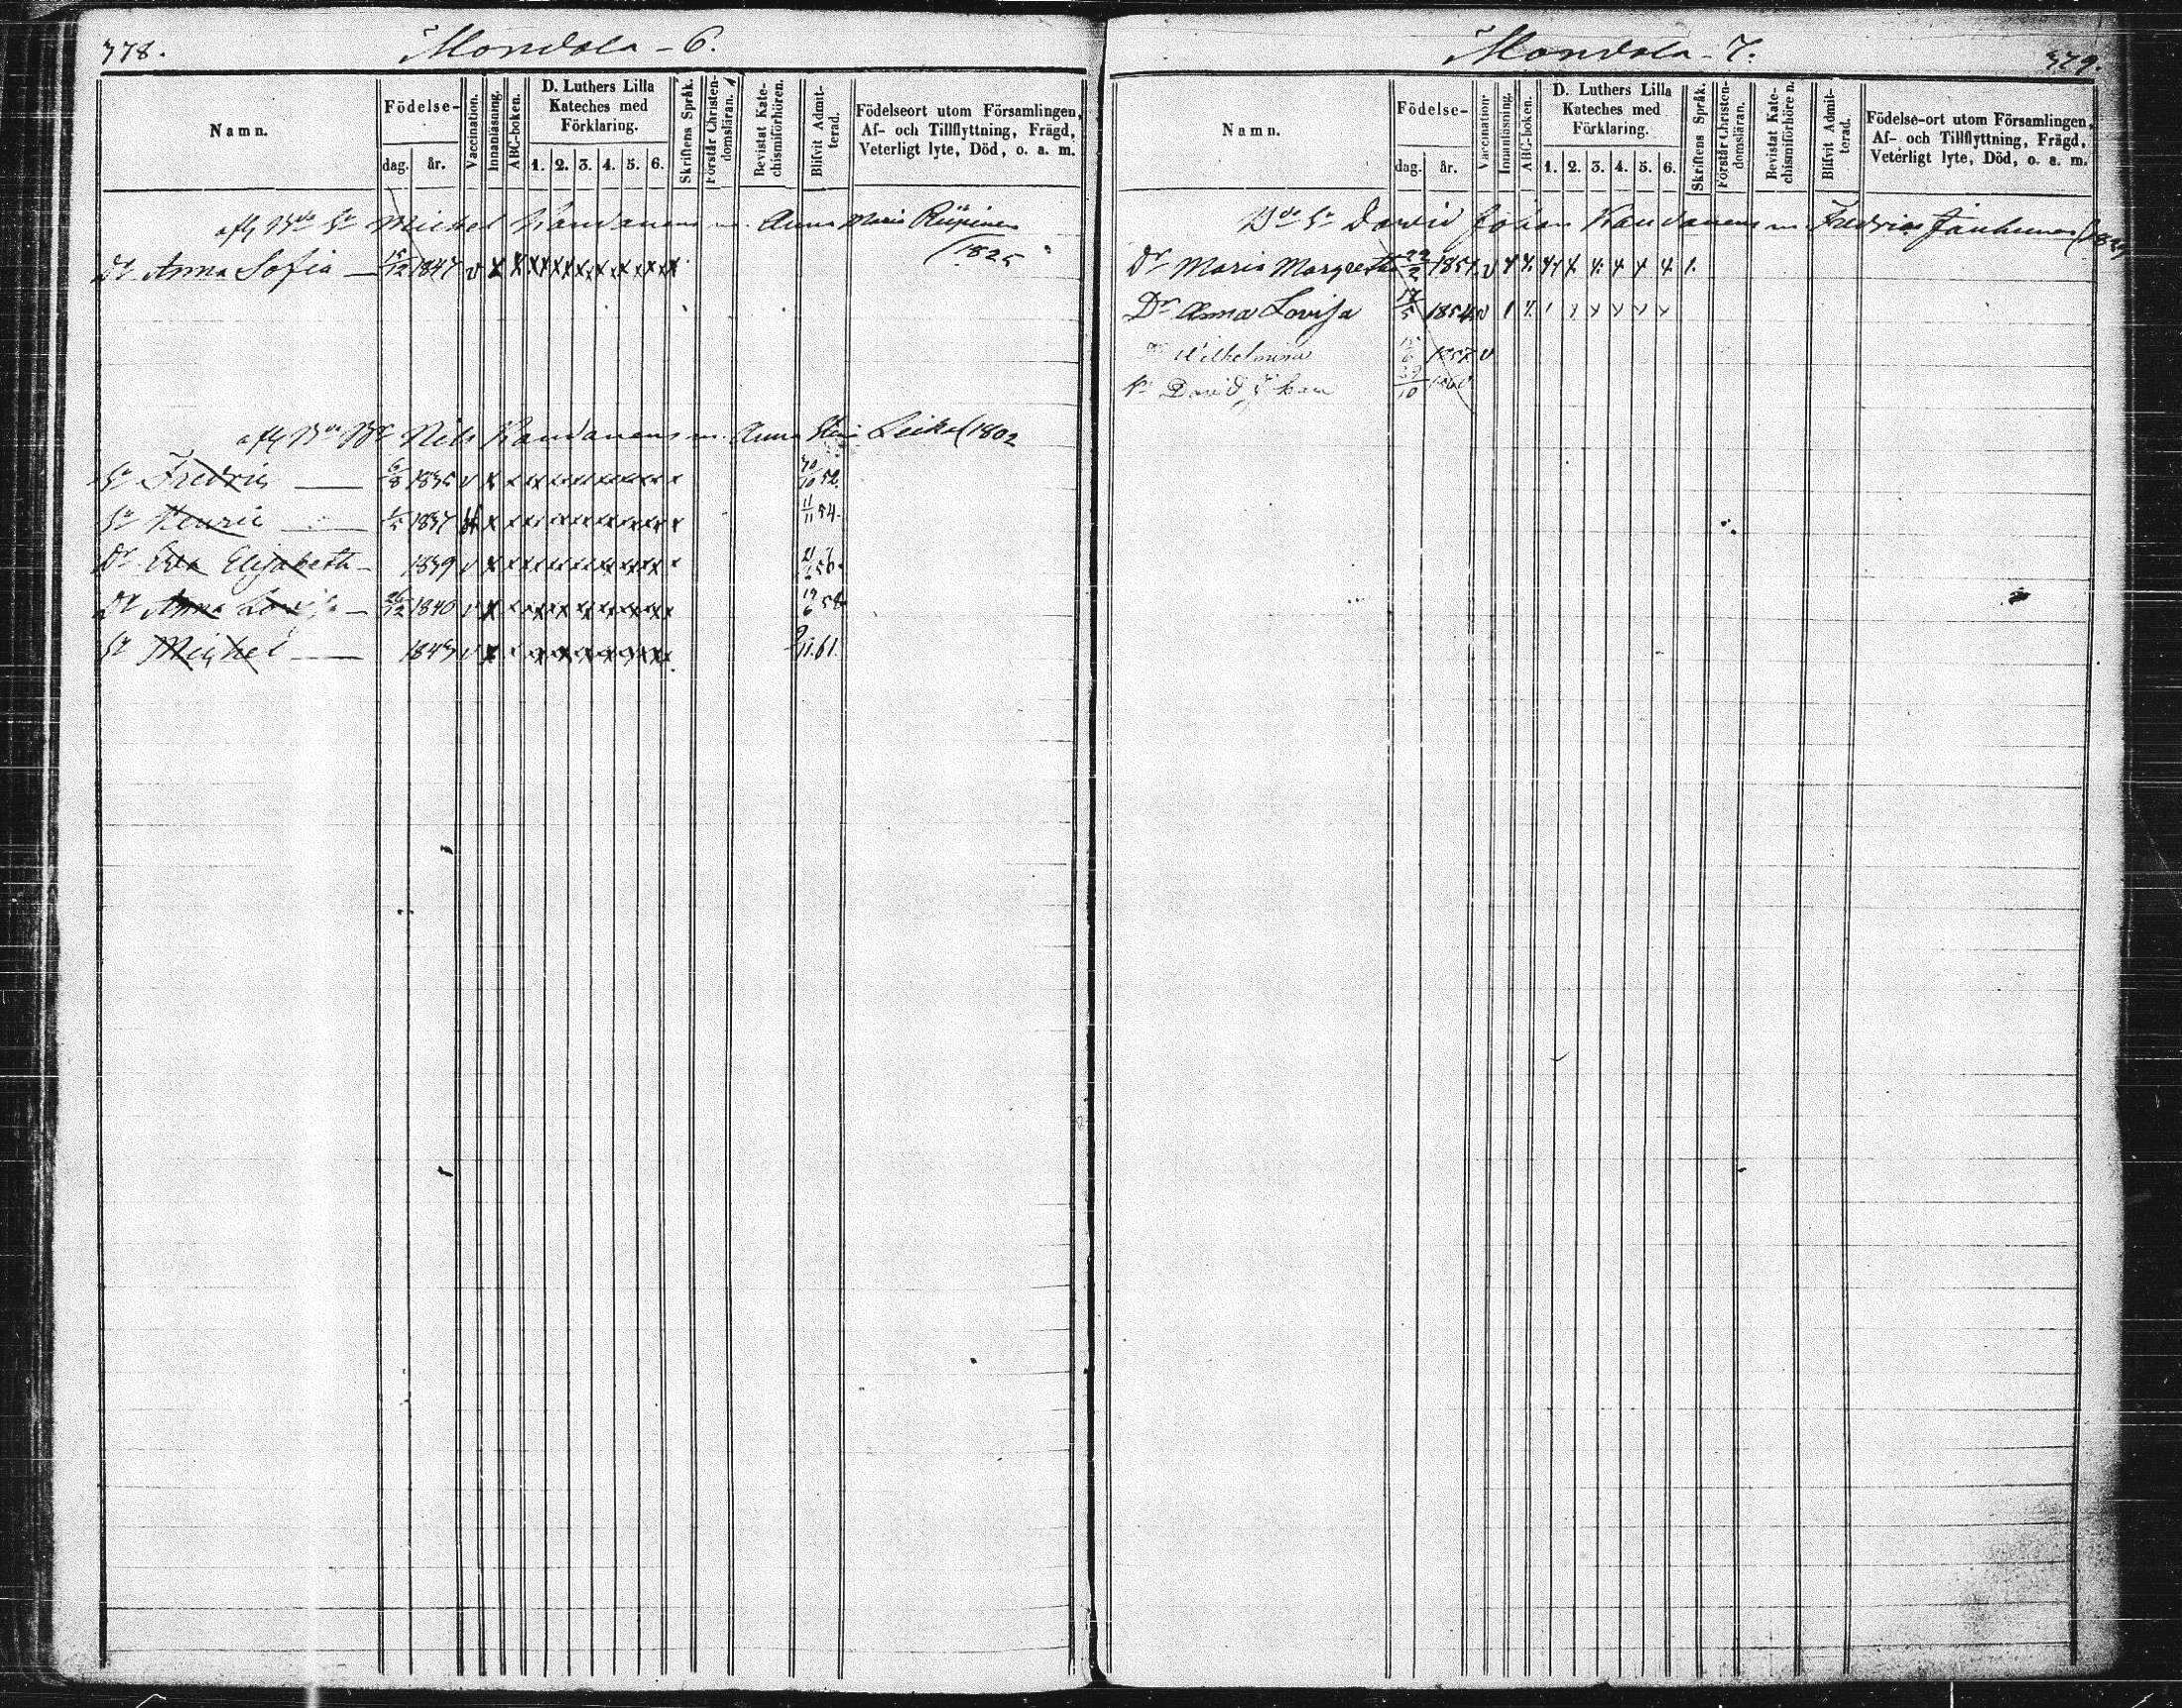 378.
Mondola - 6.
Namn.
Födelse-
dag. år.
Vaccination.
Innanläsning.
ABC-boken.
D. Luthers Lilla
Kateches med
Förklaring.
1. 2. 3. 4. 5. 6.
Skriftens Språk.
Förstår Christen-
domsläran.
Bevistat Kate-
chismiförhören.
Blifvit Admit-
terad.
Födelseort utom Församlingen,
Af- och Tillflyttning, Frägd,
Veterligt lyte, Död, o. a. m.
Michel Kaudanens m. Anna Maria Riipinen
(1825
Dr Anna Sofia 15/12 1847 v
Nils Kaudanens m. Anna (1802
Sn Fredric 6/8 1835 v 52.
Sn Henric 1837 11/11 54.
Dr Eva Elisabeth 1839 v 56.
Dr Anna Lovisa 26/12 1840 v 58
Sn Michel 1843 v 9/11 61.
Mondola - 7.
379.
Namn.
Födelse-
dag. år.
Vaccination.
Innanläsning.
ABC-boken.
D. Luthers Lilla
Kateches med
Förklaring.
1. 2. 3. 4. 5. 6.
Skriftens Språk.
Förstår Christen-
domsläran.
Bevistat Kate-
chismiförhören.
Blifvit Admit-
terad.
Födelse-ort utom Församlingen,
Af- och Tillflyttning, Frägd,
Veterligt lyte, Död, o. a. m.
Sn David Johan Kaudanens m. Fredrica Janhunen
Dr Maria Margreetha 22/2 1851 v
Dr Anna Lovisa 17/5 1854 v
Wilhelmina 15/6 1857 v
David Johan 29/10 1860